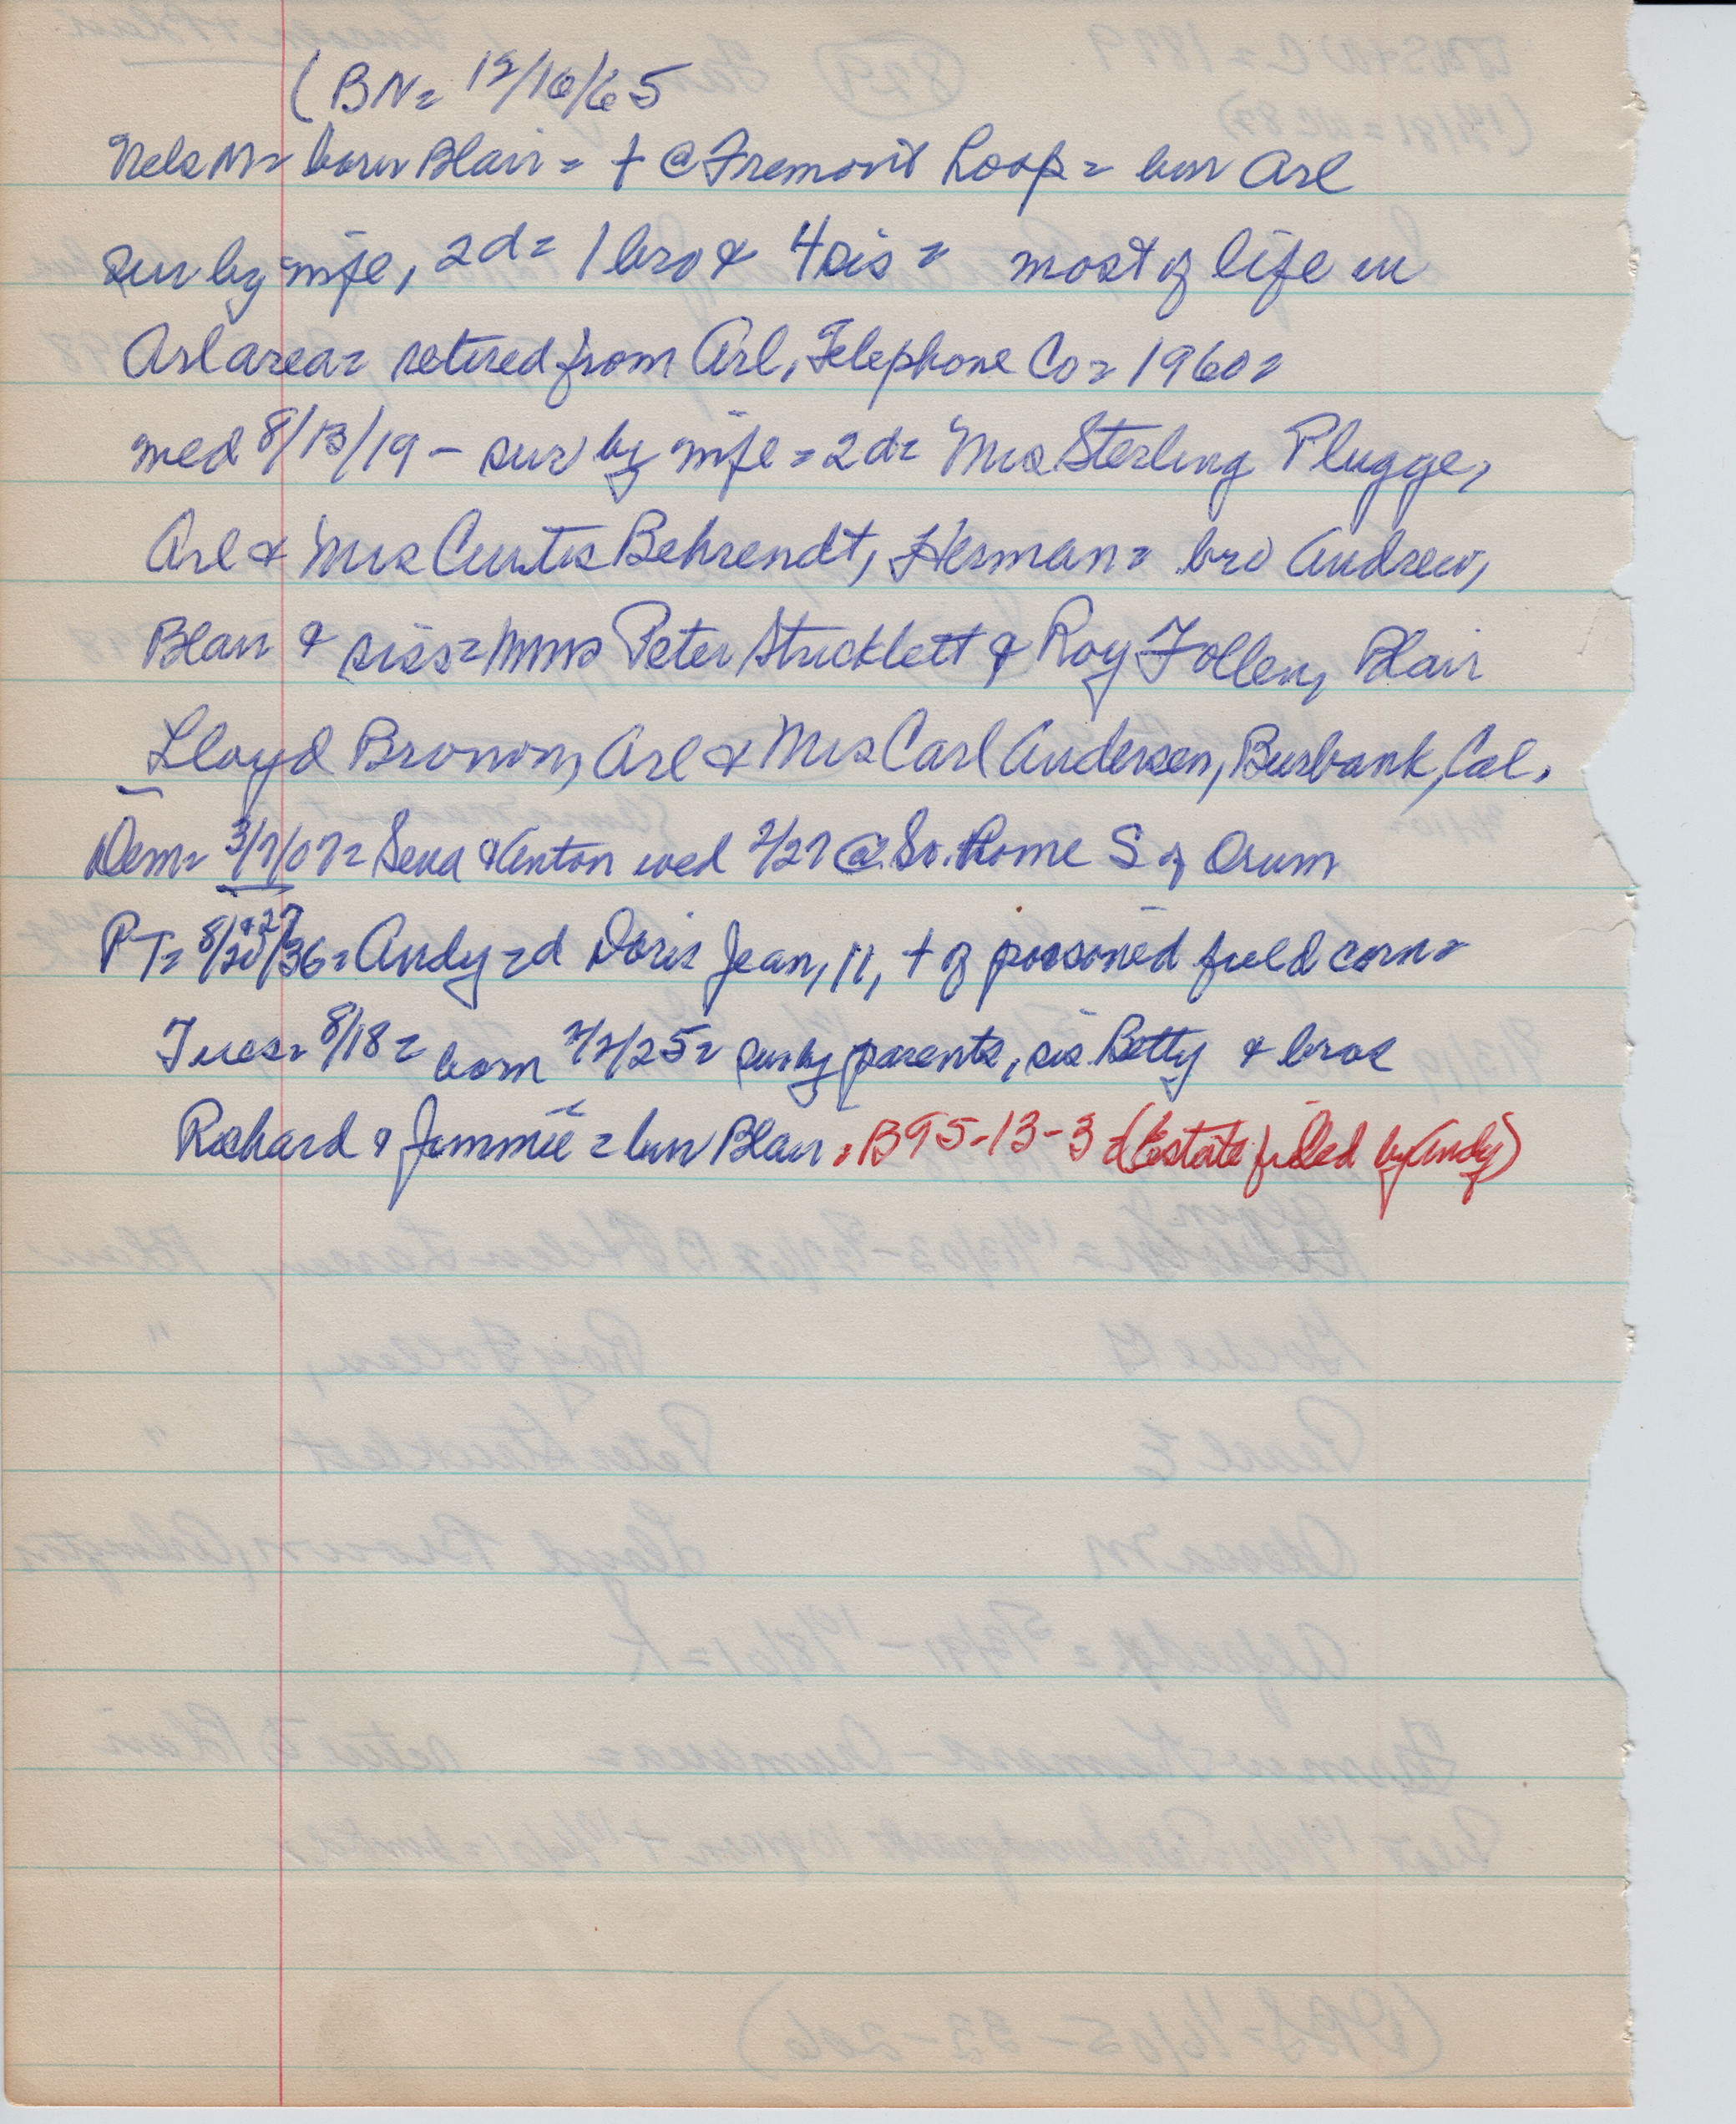 (BN= 12/16/65
Nels M= born Blair= + @ Fremont Hosp= bur Arl
sur by wife, 2d= 1 bro & 4 sis= most of life in
Arl area= retired from Arl, Telephone Co= 1960=
wed 8/13/19 - sur by wife= 2d= Mrs Sterling Plugge,
Arl & Mrs Curtis Behrendt, Herman= bro Andrew,
Blair & siss= Mmes Peter Stricklett & Roy Follen, Blair
Lloyd Brown, Arl & Mrs Carl Andersen, Burbank, Cal,
Dem= 3/7/07= Sena & Kenton wed 2/27 @ Sr. Home S of Orum
PT= 8/20 & 27/36= Andy= d Doris Jean, 11, + of poisoned field corn=
Tues= 8/18= born 2/2/25= sur by parents, sis Betty & bros
Richard & Jimmie= bur Blair= B95-13-3=(Estate filed by Andy)